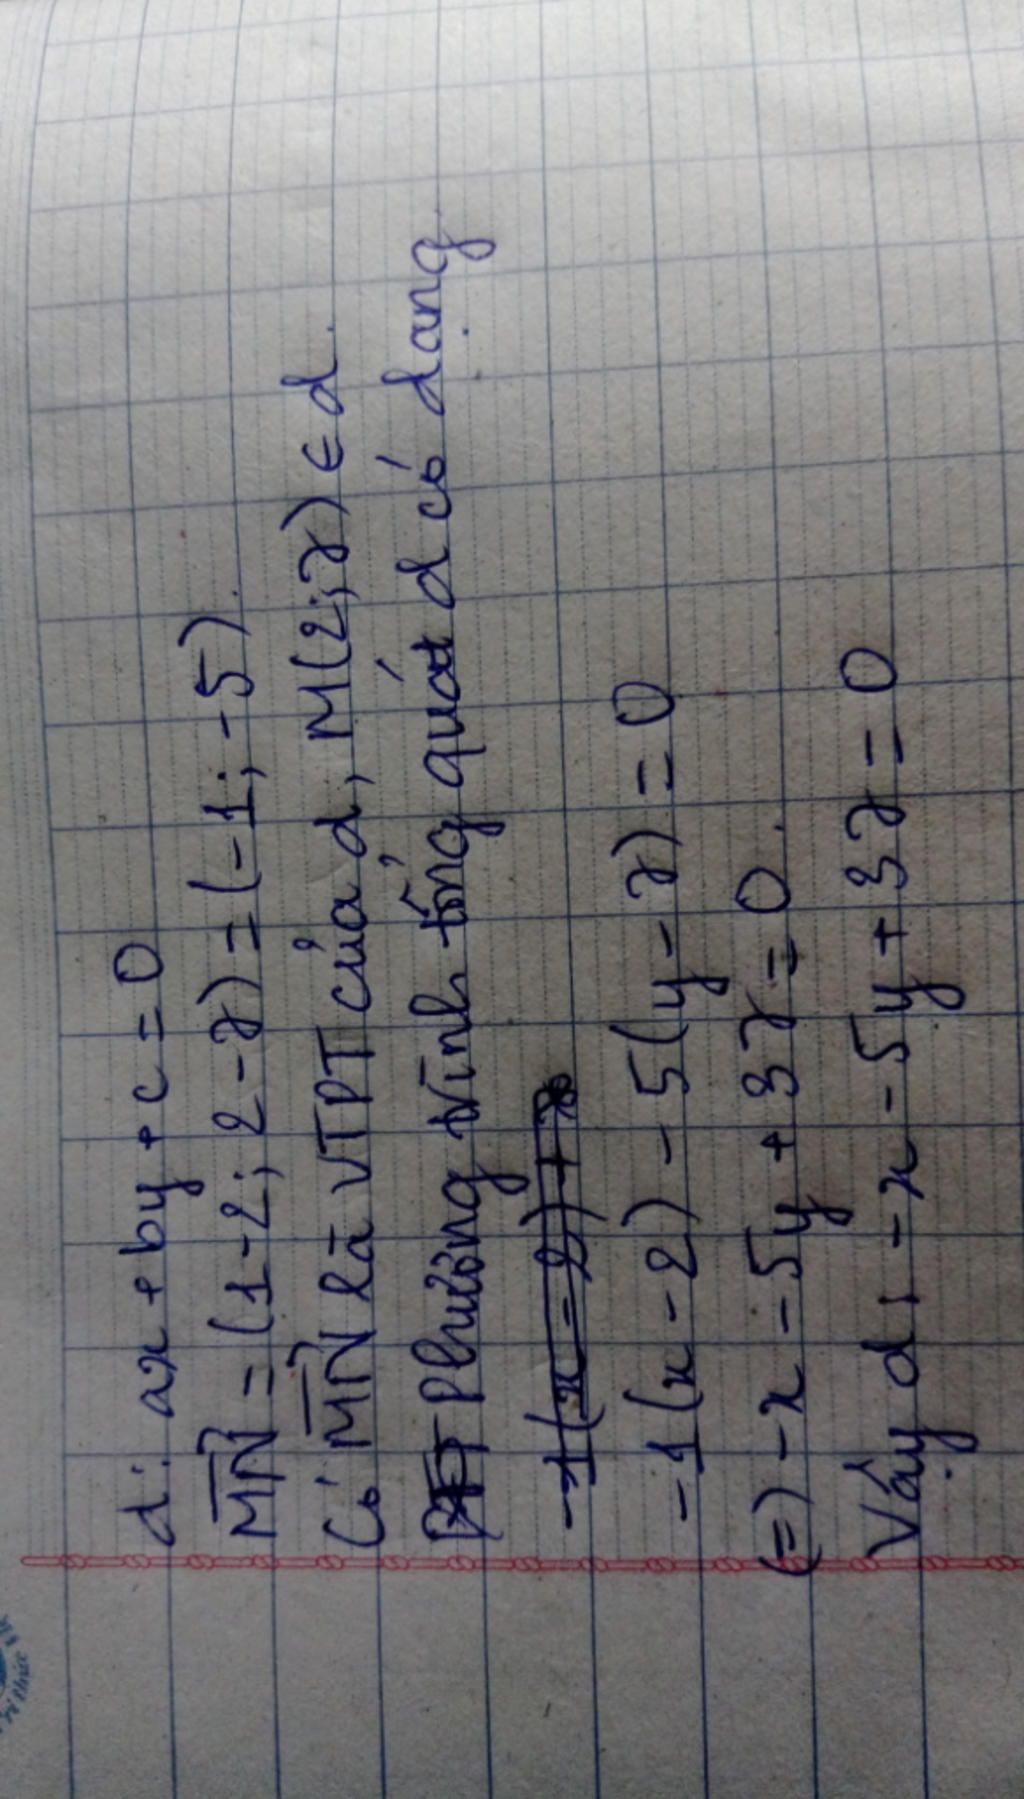 d: ax + by + c = 0
MN = (1-2; 2-7) = (-1; -5).
Có MN là VTPT của d, M(2;7) ∈ d.
Phương trình tổng quát d có dạng
-1(x-2) - 5(y-7) = 0
(=) -x - 5y + 37 = 0.
Vậy d: -x - 5y + 37 = 0